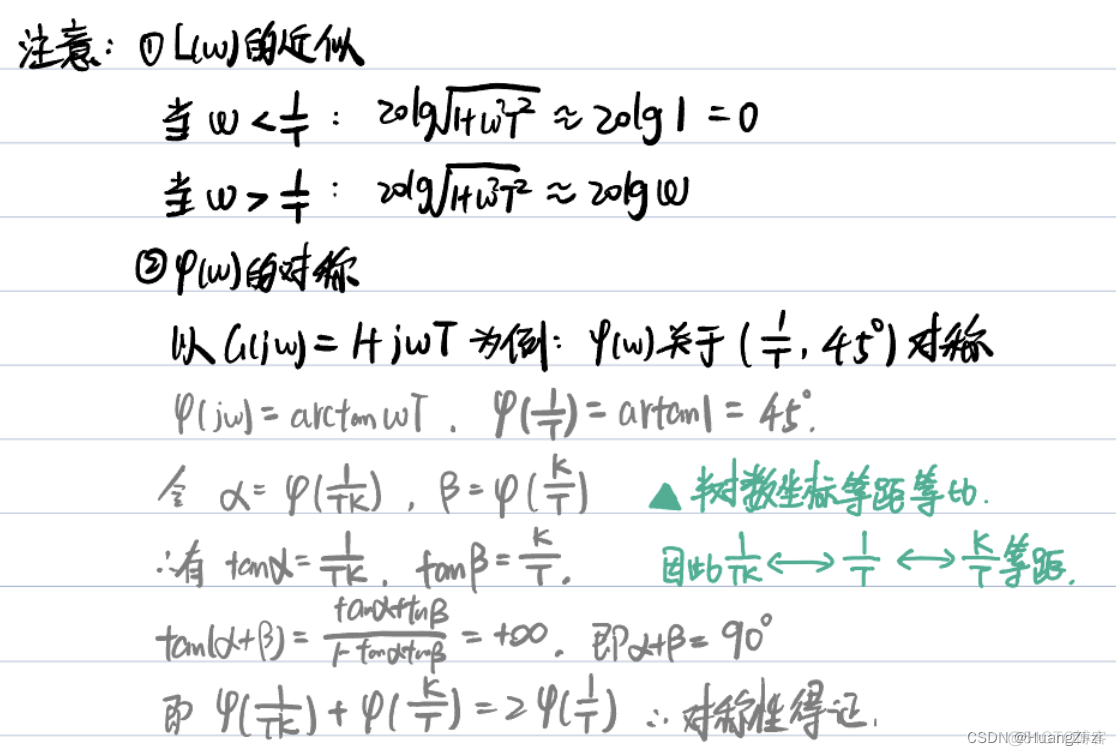 注意: ① L(ω)的近似
当 ω < 1/T : 20lg√(1+ω²T²) ≈ 20lg1 = 0
当 ω > 1/T : 20lg√(1+ω²T²) ≈ 20lgω
② φ(ω)的对称
以 G(jω) = 1+jωT 为例: φ(ω)关于 (1/T, 45°) 对称
φ(jω) = arctanωT. φ(1/T) = artan1 = 45°.
令 α = φ(1/TK), β = φ(K/T) ▲ 半对数坐标等距等比.
∴有 tanα = 1/TK, tanβ = K/T. 因此 1/TK ⟷ 1/T ⟷ K/T 等距.
tan(α+β) = (tanα+tanβ)/(1-tanαtanβ) = +∞. 即α+β = 90°
即 φ(1/TK) + φ(K/T) = 2φ(1/T) ∴ 对称性得证.
CSDN @HuangZizi